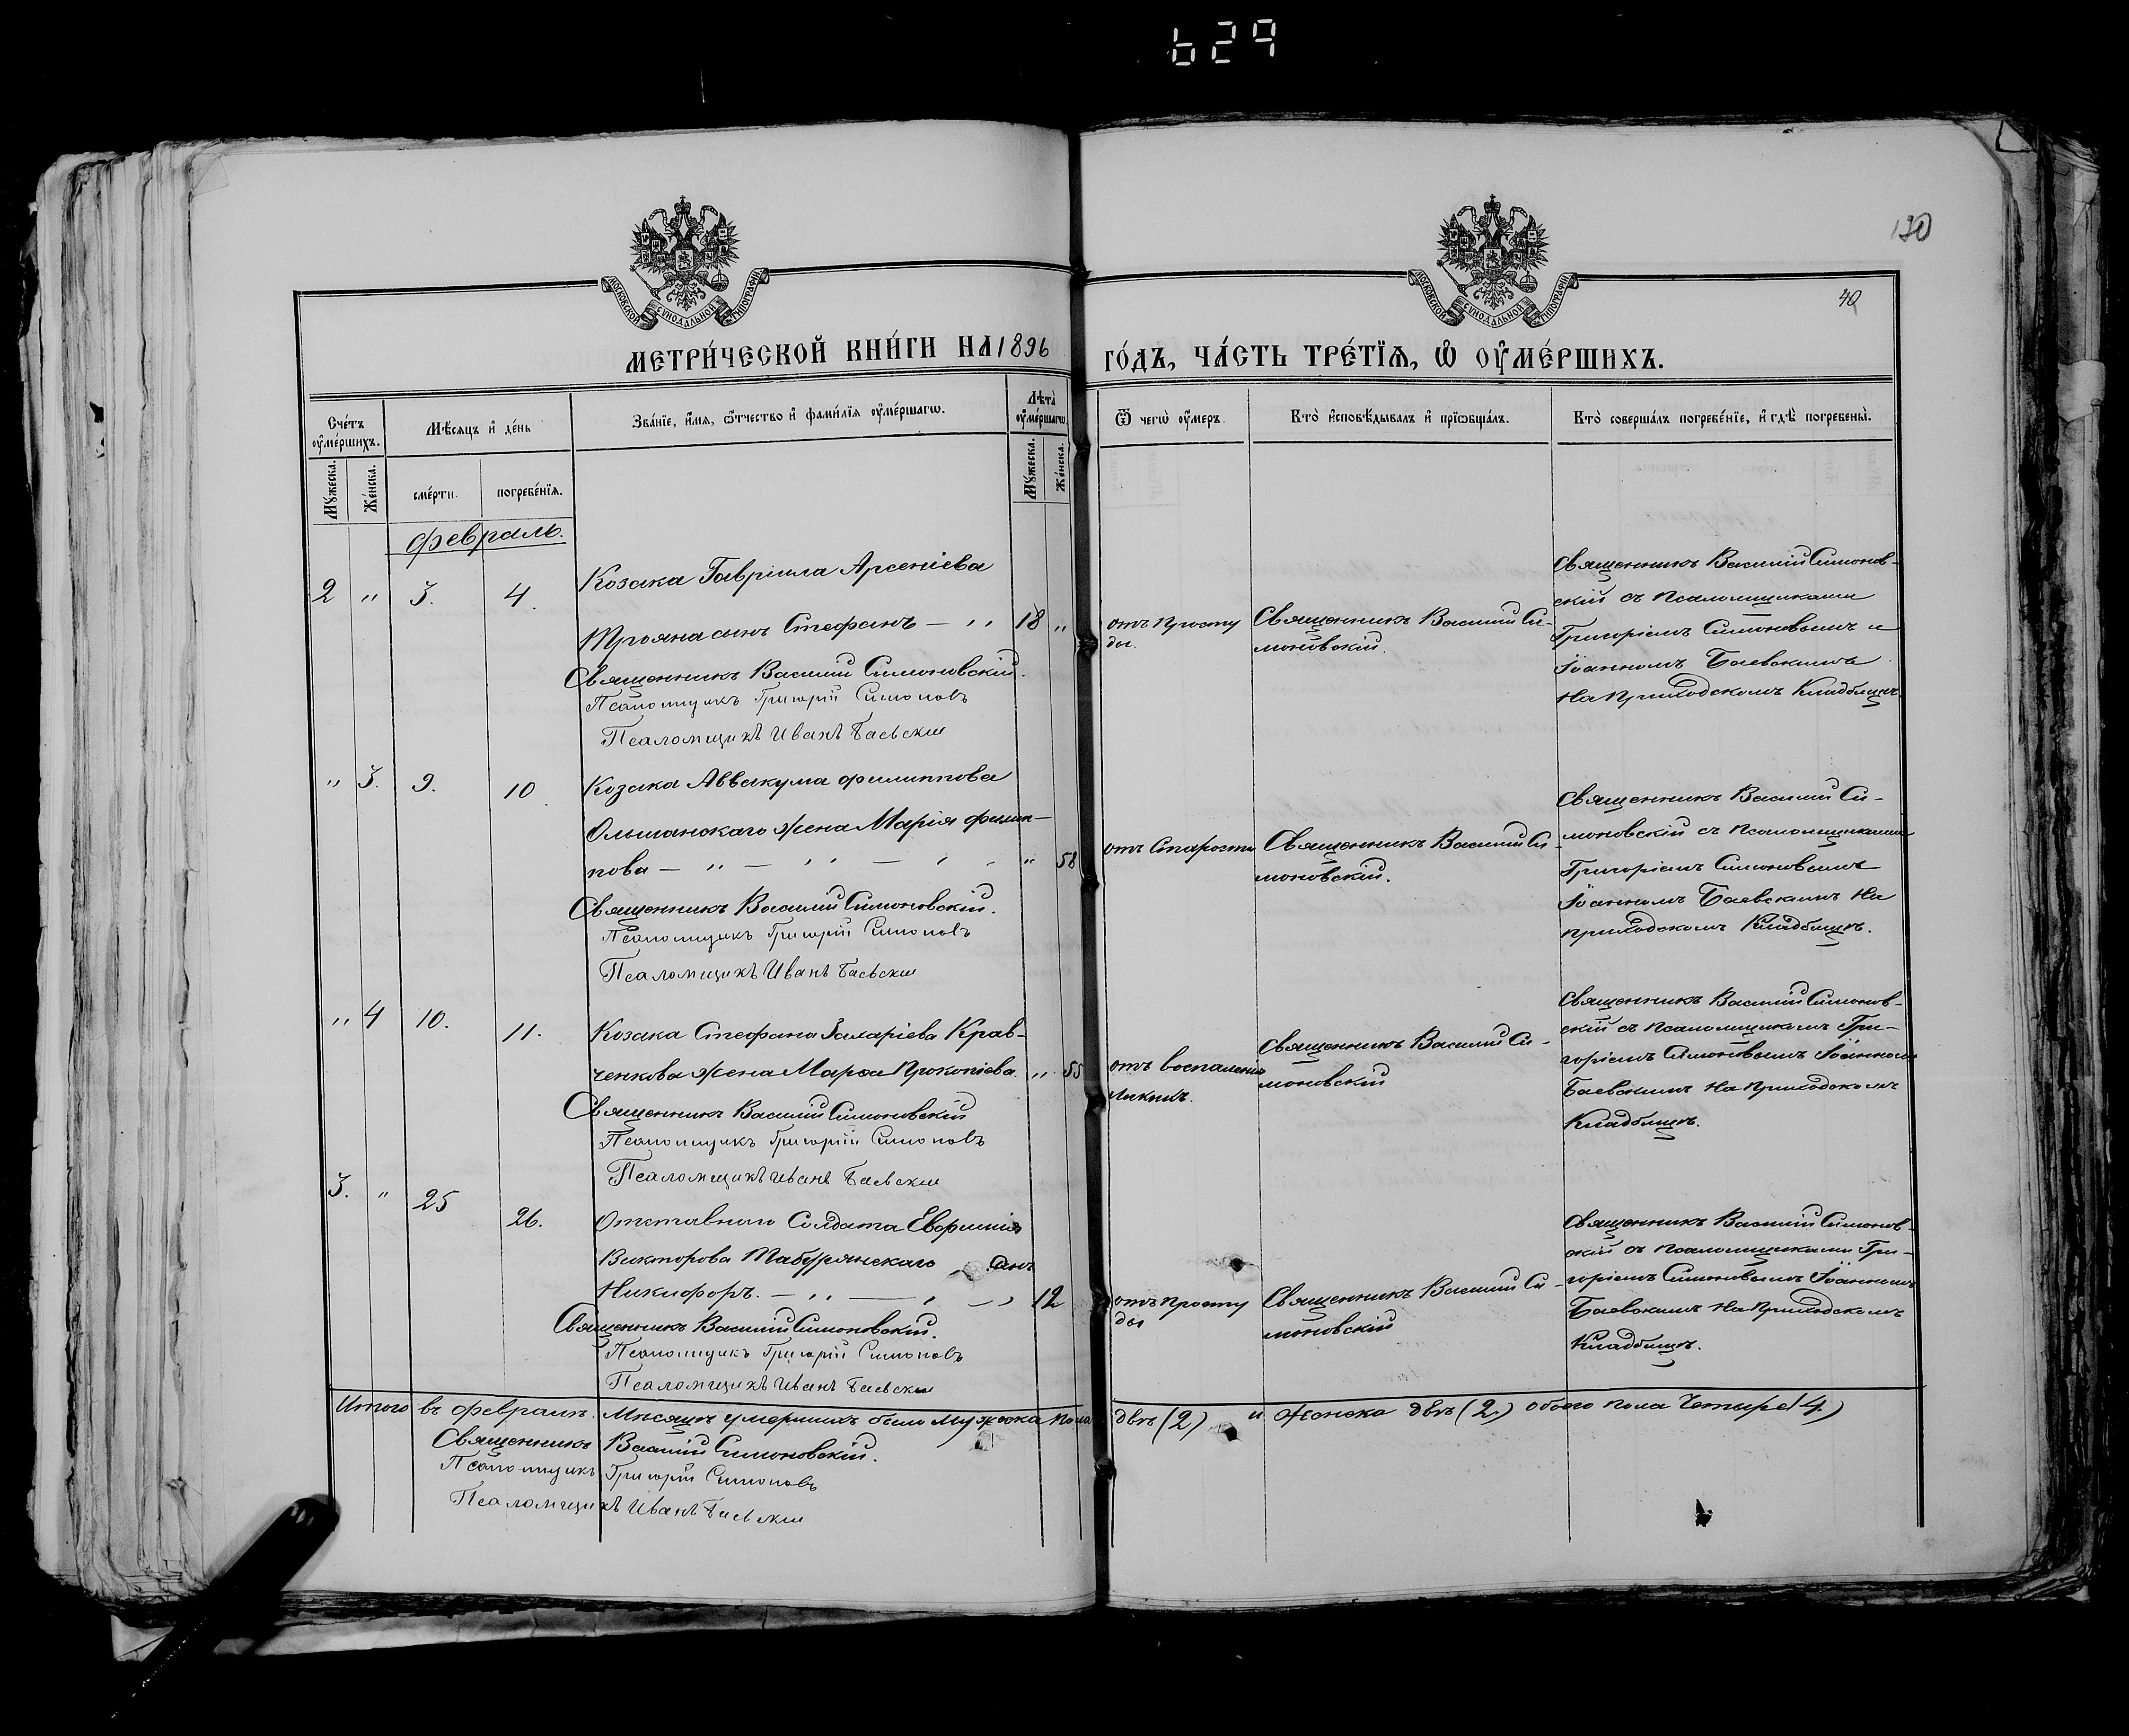 629
130
40
МОСКОВСКОЙ СѴНОДАЛЬНОЙ ТИПОГРАФІИ
МОСКОВСКОЙ СѴНОДАЛЬНОЙ ТИПОГРАФІИ
МЕТРИ́ЧЕСКОЙ КНИ́ГИ НА 1896 ГО́ДЪ, ЧА́СТЬ ТРЕ́ТЇѦ, Ѡ҆ ОУ҆МЕ́РШИХЪ.
Сче́тъ оу҆ме́ршихъ.
Мꙋ́жеска.
Же́нска.
Мѣ́сѧцъ и҆ де́нь
сме́рти.
погребе́нїѧ.
Зва́нїе, и҆́мѧ, ѻ҆́тчество и҆ фами́лїѧ оу҆ме́ршагѡ.
Лѣта̀ оу҆ме́ршагѡ.
Мꙋ́жеска.
Же́нска.
Ѿ чегѡ̀ оу҆́меръ.
Кто̀ и҆сповѣ́дывалъ и҆ прїѡбща́лъ.
Кто̀ соверша́лъ погребе́нїе, и҆ гдѣ̀ погребены̀.
Февраль.
2 „ 3. 4.
Козака Гавріила Арсеніева
Трояна сынъ Стефанъ — „ 18 „
Священникъ Василій Симоновскій.
Псаломщикъ Григорій Симоновъ
Псаломщикъ Иванъ Баевскій
отъ просту
ды.
Священникъ Василій Си-
моновскій.
Священникъ Василій Симонов-
скій съ псаломщиками
Григоріемъ Симоновымъ и
Іоанномъ Баевскимъ
на приходскомъ кладбищѣ.
„ 3. 9. 10.
Козака Аввакума Филиппова
Ольшанскаго жена Марія Филип-
пова — „ — „ — „ 58
Священникъ Василій Симоновскій.
Псаломщикъ Григорій Симоновъ
Псаломщикъ Иванъ Баевскій
отъ старости
Священникъ Василій Си-
моновскій.
Священникъ Василій Си-
моновскій съ псаломщиками
Григоріемъ Симоновымъ
Іоанномъ Баевскимъ на
приходскомъ кладбищѣ.
„ 4 10. 11.
Козака Стефана Захаріева Крав-
ченкова жена Марѳа Прокопіева. „ 55
Священникъ Василій Симоновскій
Псаломщикъ Григорій Симоновъ
Псаломщикъ Иванъ Баевскій
отъ воспаленія
легкихъ.
Священникъ Василій Си-
моновскій
Священникъ Василій Симонов-
скій съ псаломщикомъ Гри-
горіемъ Симоновымъ Іоанномъ
Баевскимъ на приходскомъ
кладбищѣ.
3. „ 25 26.
Отставного Солдата Евфимія
Викторова Табурянскаго сынъ
Никифоръ. — „ — „ — 12
Священникъ Василій Симоновскій.
Псаломщикъ Григорій Симоновъ
Псаломщикъ Иванъ Баевскій
отъ просту
ды
Священникъ Василій Си-
моновскій
Священникъ Василій Симонов-
скій съ псаломщиками Гри-
горіемъ Симоновымъ Іоанномъ
Баевскимъ на приходскомъ
кладбищѣ.
Итого въ февралѣ мѣсяцѣ умершихъ было мужеска пола двѣ (2) и женска двѣ (2.) обоего пола четыре (4.)
Священникъ Василій Симоновскій.
Псаломщикъ Григорій Симоновъ
Псаломщикъ Иванъ Баевскій